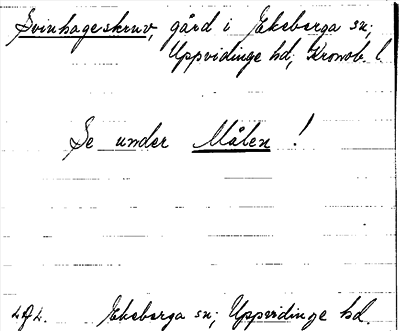 Svinhageskruv, gård i Ekeberga sn;
Uppvidinge hd, Kronob. l.
Se under Målen!
Ekeberga sn; Uppvidinge hd.